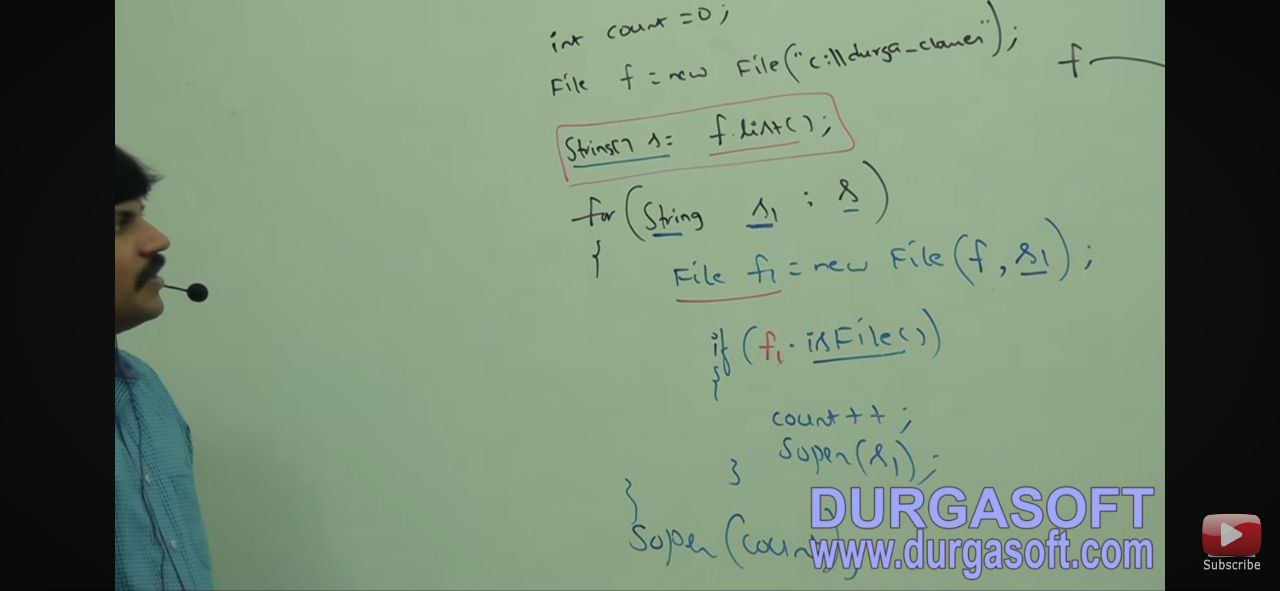 int count = 0;
File f = new File("c:\\durga_classes");
String[] s = f.list();
f
for(String s1 : s)
{
File f1 = new File(f, s1);
if (f1.isFile())
{
count++;
Sopen(s1);
}
}
Sopen(coun
DURGASOFT
www.durgasoft.com
Subscribe